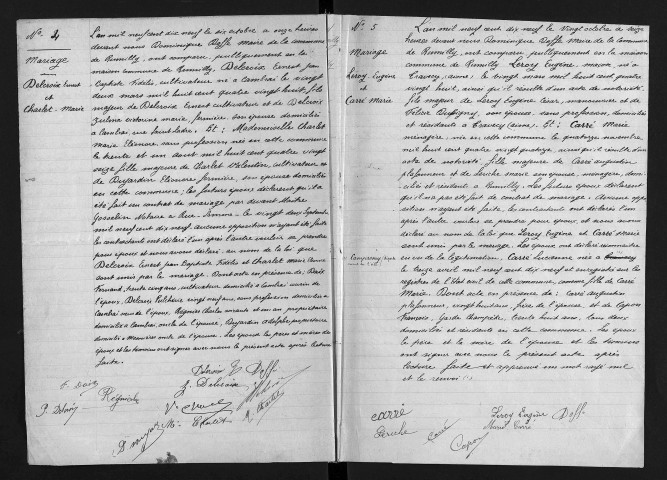 N° 4
Mariage
Delcroix Ernest
et
Charlet Marie
L'an mil neuf cent dix neuf le six octobre a onze heures
devant nous Dominique Doffe Maire de la commune
de Rumilly, ont comparu publiquement en la
maison commune de Rumilly, Delcroix Ernest Jean
Baptiste Fidèles, cultivateur né a Cambrai le vingt
deux mars mil huit cent quatre vingt huit, fils
majeur de Delcroix Ernest cultivateur et de Delcroix
Zulina victorine fermière, son épouse domiciliés
a Cambrai, rue Saint Ladre. Et: Mademoiselle Charlet
Marie Eléonore, sans profession née en cette commune
le trente et un août mil huit cent quatre vingt
seize fille majeure de Charlet Valentin, cultivateur et
de Dujardin Eléonore fermière, son épouse domiciliés
en cette commune; les futurs époux déclarent qu'il a
été fait un contrat de mariage par devant Maître
Gosselin Notaire a le vingt deux Septembre
mil neuf cent dix neuf. aucune opposition n'ayant été faite
les contractants ont déclaré l'un après l'autre vouloir se prendre
pour époux et nous avons déclaré au nom de la loi que
Delcroix Ernest Jean Baptiste Fidèles et Charlet Marie Eléonore
sont unis par le mariage. Dont acte en présence de:
Fernand, trente cinq ans, cultivateur domicilié a Cambrai cousin de
l'époux, vingt neuf ans, sans profession domicilié a
Cambrai de l'époux, Régnier Charles soixante et un an propriétaire
domicilié a Cambrai, oncle de l'épouse, Dujardin Adolphe, propriétaire
domicilié a Masnières oncle de l'épouse. Les époux les pères et mères des
époux et les témoins ont signé avec nous le présent acte après lecture
faite.
Delcroix E Doffe
Z. Delcroix
Régnier
Charlet
N° 5
Mariage
Leroy Eugène
et
Carré Marie
L'an mil neuf cent dix neuf le vingt octobre a seize
heures devant nous Dominique Doffe Maire de la commune
de Rumilly, ont comparu publiquement en la maison
commune de Rumilly Leroy Eugène, né a
Travecy (aisne) le vingt mars mil huit cent quatre
vingt huit, ainsi qu'il résulte d'un acte de notoriété.
fils majeur de Leroy Eugène César, manouvrier et de
son épouse, sans profession, domiciliés
et résidants a Travecy (aisne). Et: Carré Marie
ménagère, née en cette commune le quatorze novembre
mil huit cent quatre vingt quatorze, ainsi qu'il résulte d'un
acte de notoriété. fille majeure de Carré augustin
plafonneur et de Lerche Marie son épouse, ménagère, domi-
ciliés et résidants a Rumilly. Les futurs époux déclarent
qu'il n'a pas été fait de contrat de mariage. Aucune oppo-
sition n'ayant été faite, les contractants ont déclaré l'un
après l'autre vouloir se prendre pour époux, et nous avons
déclaré au nom de la loi que Leroy Eugène et Carré Marie
sont unis par le mariage. Les époux ont déclaré reconnaitre
en vue de la légitimation, Carré Lucienne née a
le treize avril mil neuf cent dix neuf et enregistrée sur les
registres de l'Etat civil de cette commune, comme fille de Carré
Marie. Dont acte en présence de: Carré augustin
plafonneur, père de l'épouse, et de Capon
François, garde champêtre, trente huit ans, tous deux
domiciliés et résidant en cette commune. Les époux
le père et la mère de l'épouse et les témoins
ont signé avec nous le présent acte après
lecture faite et approuvé un mot rayé nul
et le renvoi.
Carré
Lerche
Carré
Capon
Leroy Eugène Doffe
Marie Carré